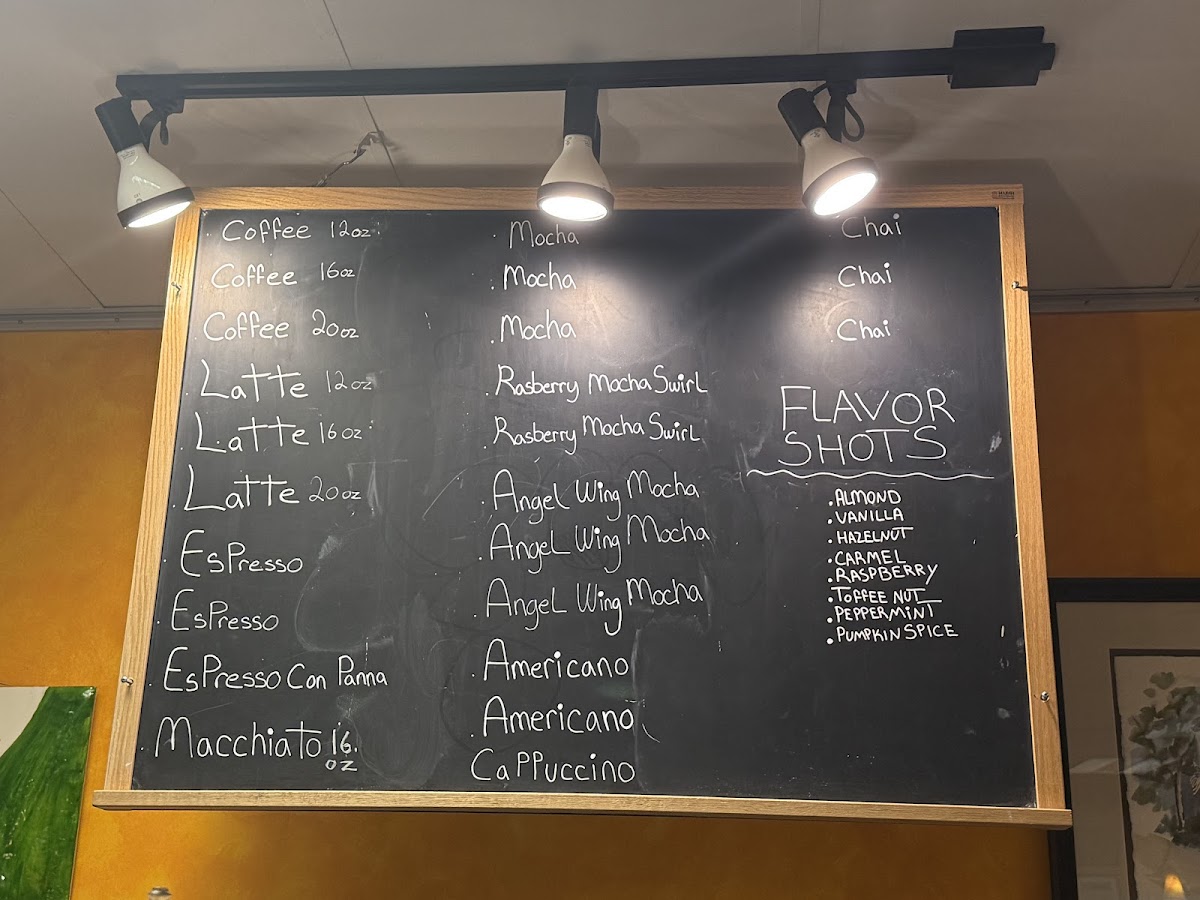 Coffee 12oz
Coffee 16oz
Coffee 20oz
Latte 12oz
Latte 16oz
Latte 20oz
Espresso
Espresso
Espresso Con Panna
Macchiato 16
oz
Mocha
Mocha
Mocha
Rasberry Mocha Swirl
Rasberry Mocha Swirl
Angel Wing Mocha
Angel Wing Mocha
Angel Wing Mocha
Americano
Americano
Cappuccino
Chai
Chai
Chai
FLAVOR
SHOTS
. ALMOND
. VANILLA
. HAZELNUT
. CARMEL
. RASPBERRY
. TOFFEE NUT
. PEPPERMINT
. PUMPKIN SPICE